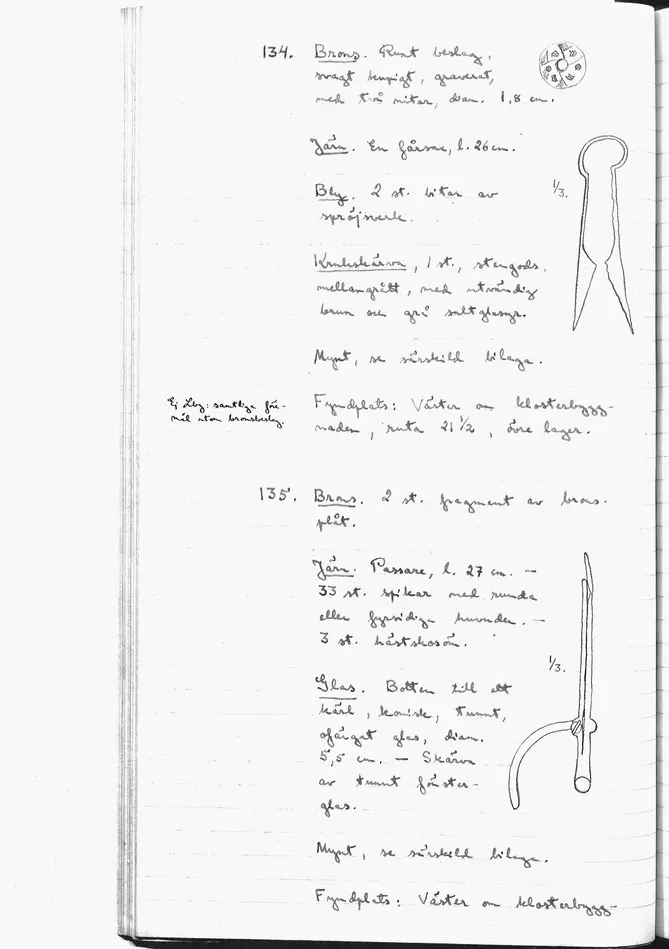 134. Brons. Runt beslag,
svagt kupigt, graverat,
med två nitar, diam. 1,8 cm.
Järn. En fårsax, l. 26 cm.
1/3.
Bly. 2 st. bitar av
spröjsverk.
Krukskärva, 1 st., stengods.
mellangrått, med utvändig
brun och grå saltglasyr.
Mynt, se särskild bilaga.
Ej Lbg: samtliga före-
mål utom bronsbeslag.
Fyndplats: Väster om klosterbygg-
naden, ruta 21 1/2, övre lager.
135. Brons. 2 st. fragment av brons-
plåt.
Järn. Passare, l. 27 cm. —
33 st. spikar med runda
eller fyrsidiga huvuden. —
3 st. hästskosöm.
1/3.
Glas. Botten till ett
kärl, konisk, tunnt,
ofärgat glas, diam.
5,5 cm. — Skärva
av tunnt fönster-
glas.
Mynt, se särskild bilaga.
Fyndplats: Väster om klosterbygg-